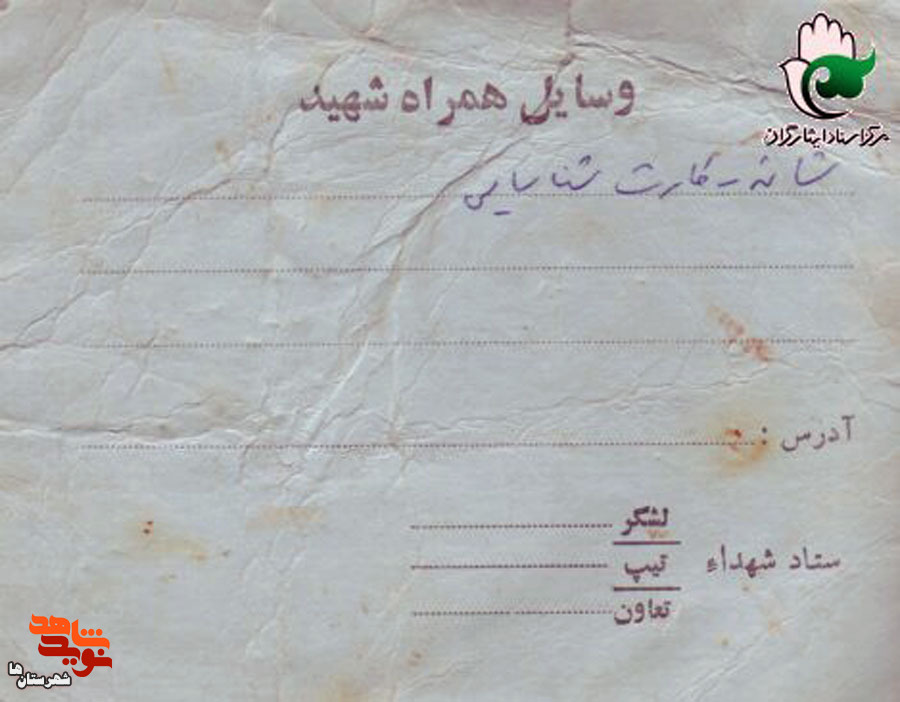 وسایل همراه شهید
مرکز اسناد ایثارگران
شانه - کارت شناسایی
آدرس :
لشگر
ستاد شهداء تیپ
تعاون
نوید شاهد
شهرستان‌ها